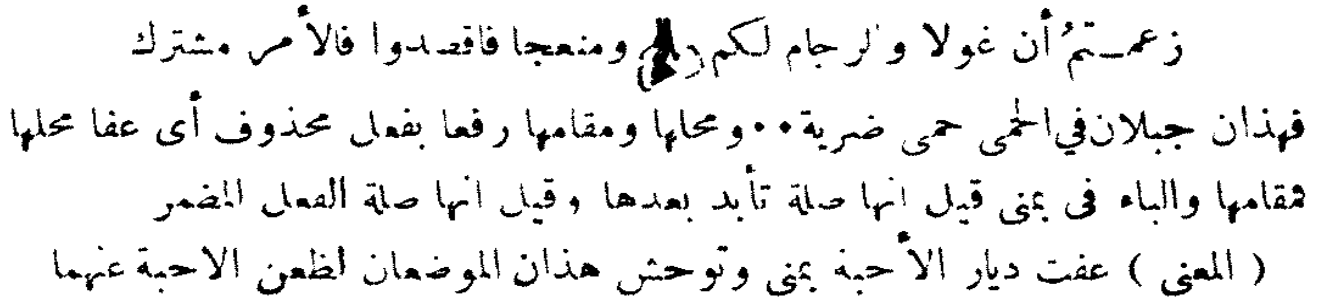 زعمـتمُ أن غولا والرجام لكم ومنعجا فاقصدوا فالأمر مشترك
فهذان جبلان في الحمى حمى ضرية ٠٠ ومحلها ومقامها رفعا بفعل محذوف أى عفا محلها
فمقامها والباء فى بمنى قيل انها صلة تأبد بعدها وقيل انها صلة الفعل المضمر
( المعنى ) عفت ديار الأحبة بمنى وتوحش هذان الموضعان لظعن الاحبة عنهما